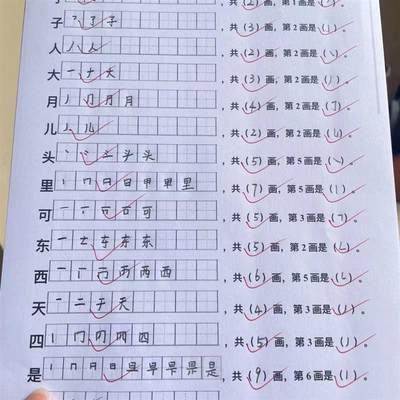 子 共(3)画，第2画是(亅)。
人 丿 人 共(2)画，第2画是(㇏)。
大 一 ナ 大 共(3)画，第2画是(丿)。
月 丿 ⺆ 月 月 共(4)画，第2画是(㇆)。
儿 丿 儿 共(2)画，第2画是(乚)。
头 丶 头 头 共(5)画，第5画是(㇏)。
里 丨 冂 曰 日 甲 里 共(7)画，第5画是(丨)。
可 一 可 可 共(5)画，第3画是(㇕)。
东 一 东 东 共(5)画，第2画是(㇜)。
西 一 丆 襾 西 西 共(6)画，第5画是(㇄)。
天 一 二 于 天 共(4)画，第3画是(丿)。
四 丨 冂 四 四 共(5)画，第3画是(丿)。
是 丨 冂 日 日 旦 早 是 共(9)画，第6画是(丨)。